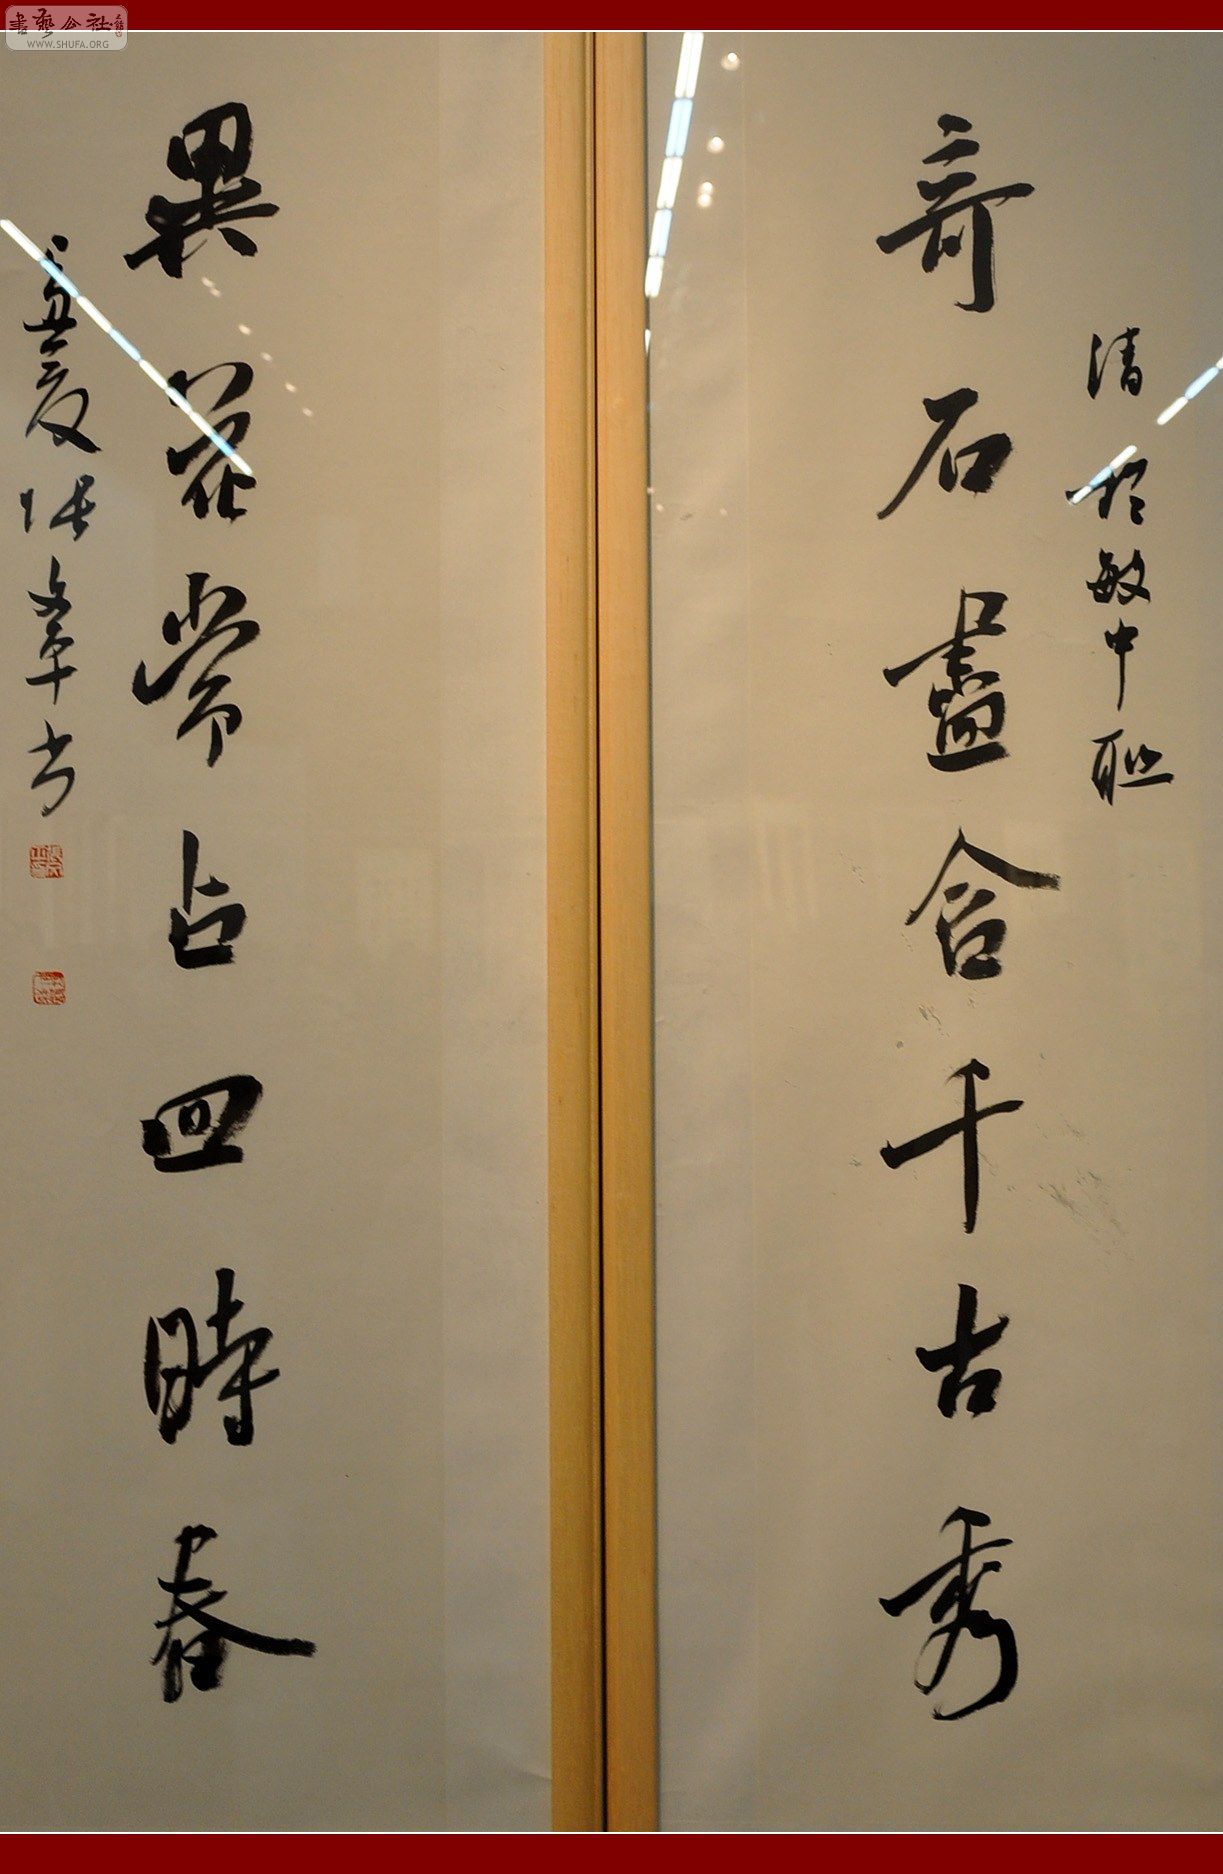 清 於敏中聯
奇石盡含千古秀
異花常占四時春
辛丑夏張文平書
書藝公社
WWW.SHUFA.ORG